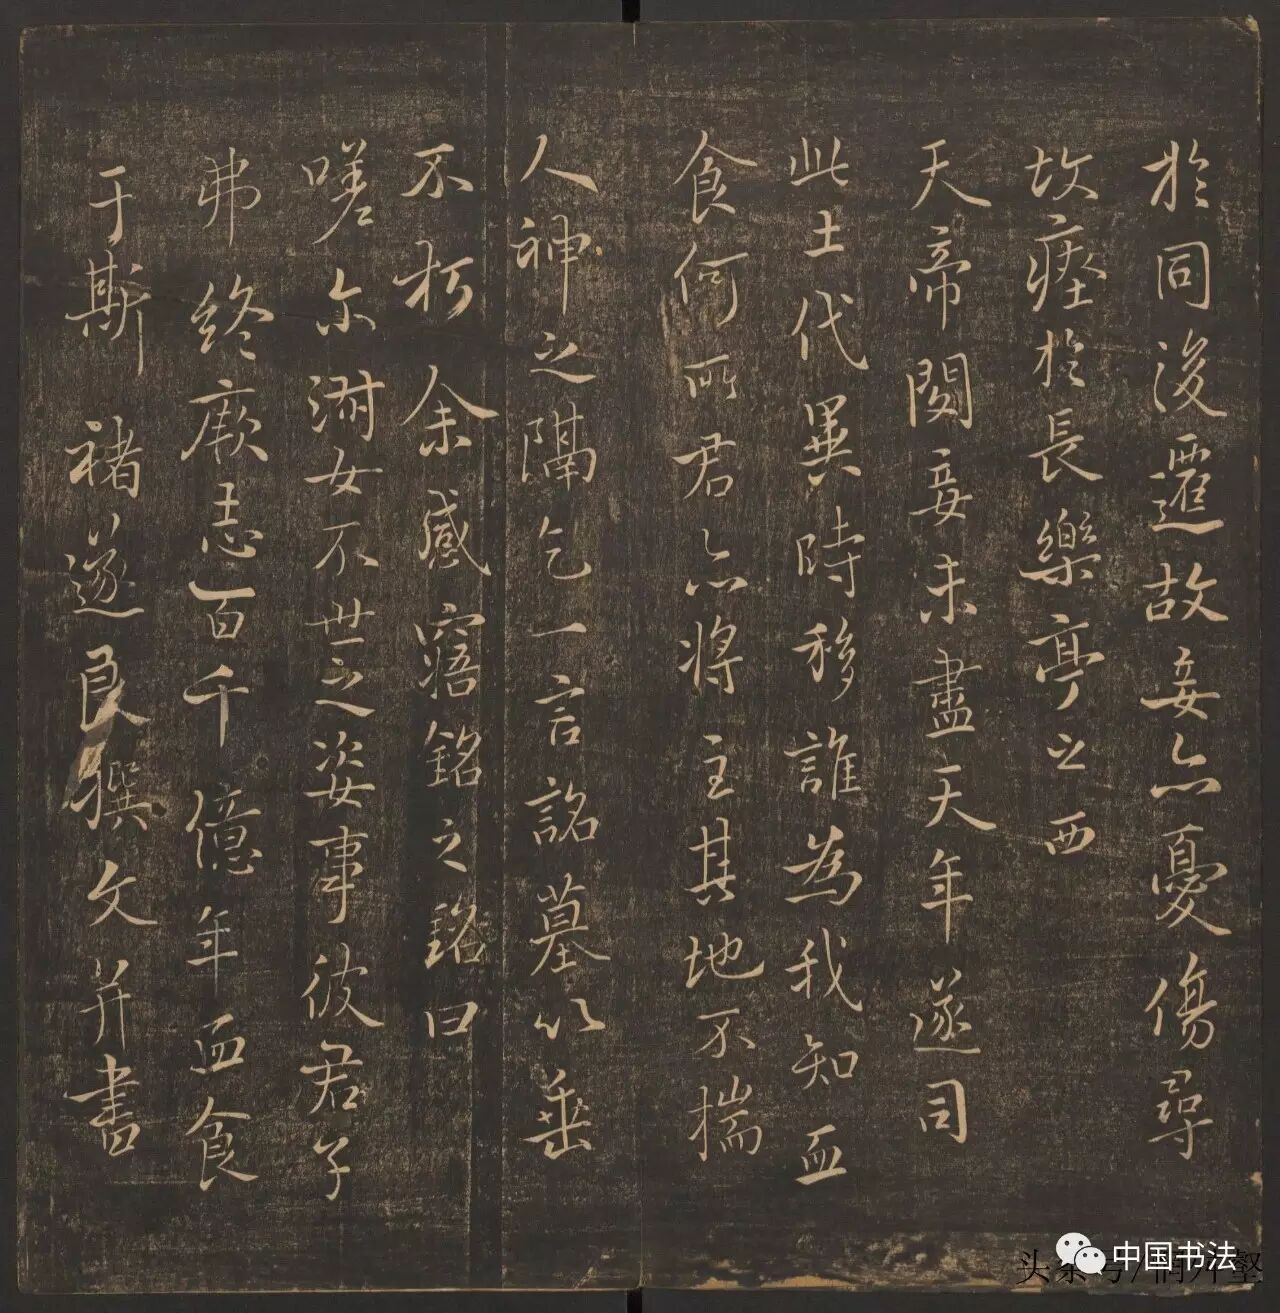 於同後遷故妾亦憂傷尋
故瘞於長樂亭之西
天帝閔妾未盡天年遂司
此土代異時移誰為我知血
食何所君亦將主其地不揣
人神之隔乞一言詺墓以垂
不朽余感寤銘之銘曰
嗟尔淑女不世之姿事彼君子
弗終厥志百千億年血食
于斯 褚遂良撰文并書
中国书法
头条号/